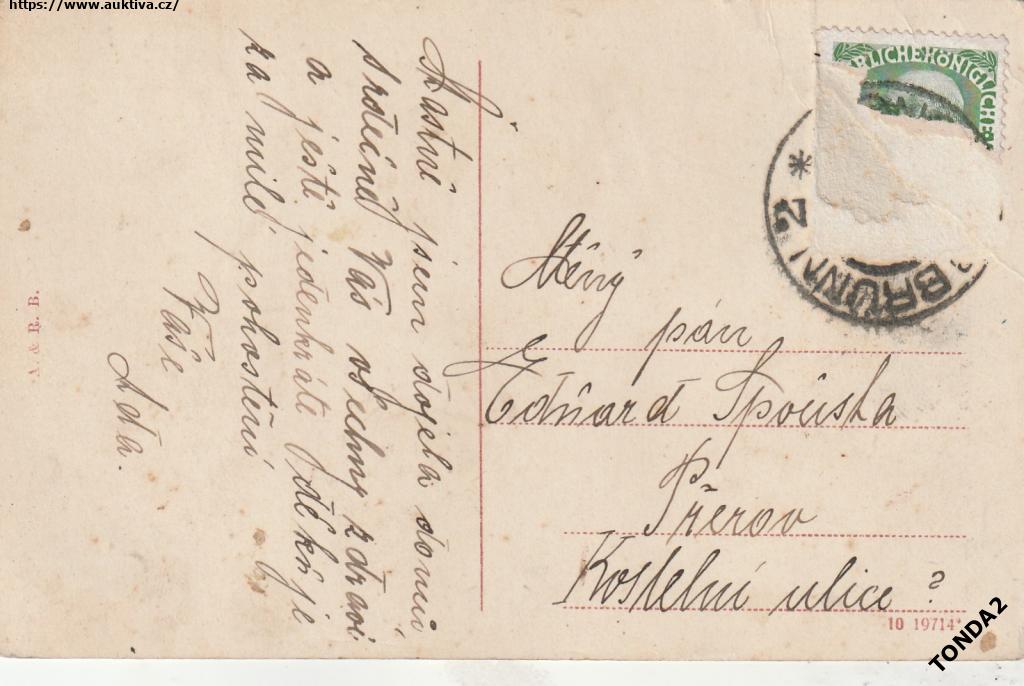 https://www.auktiva.cz/
Šťastně jsem dojela domů
srdečně Vás všechny zdraví
a ještě jedenkráte děkuje
za milé pohostění
Vaše
Ada.
RLICHEKÖNIGLICHE
2
BRÜNN
Ctěný
pán
Eduard Spousta
Přerov
Kostelní ulice?
A. & R. B.
10 19714*
TONDA2